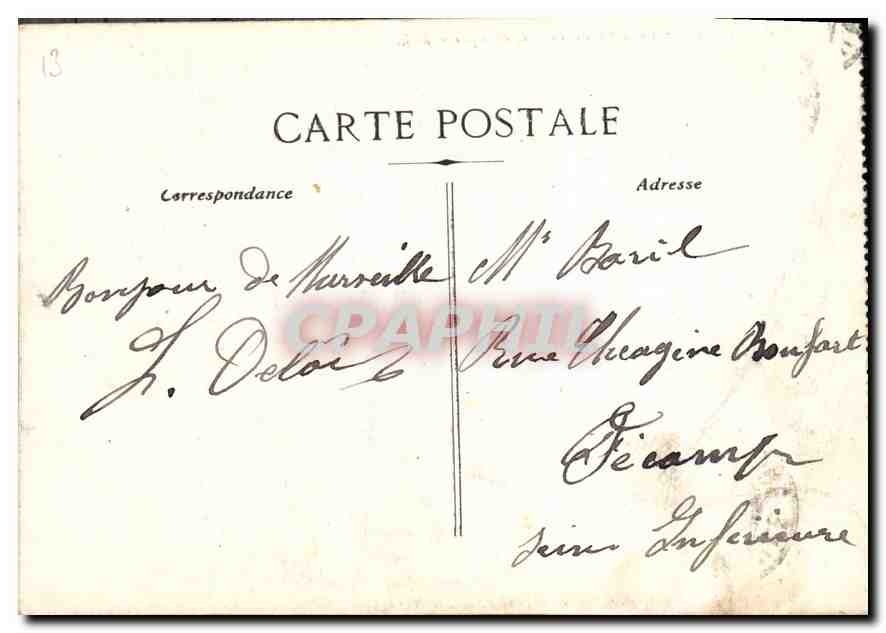 13
CARTE POSTALE
Correspondance
Adresse
Bonjour de Marseille
Mr Baril
CPAPHIL
Rue Theagène Boufart
Fécamp
Seine Inférieure